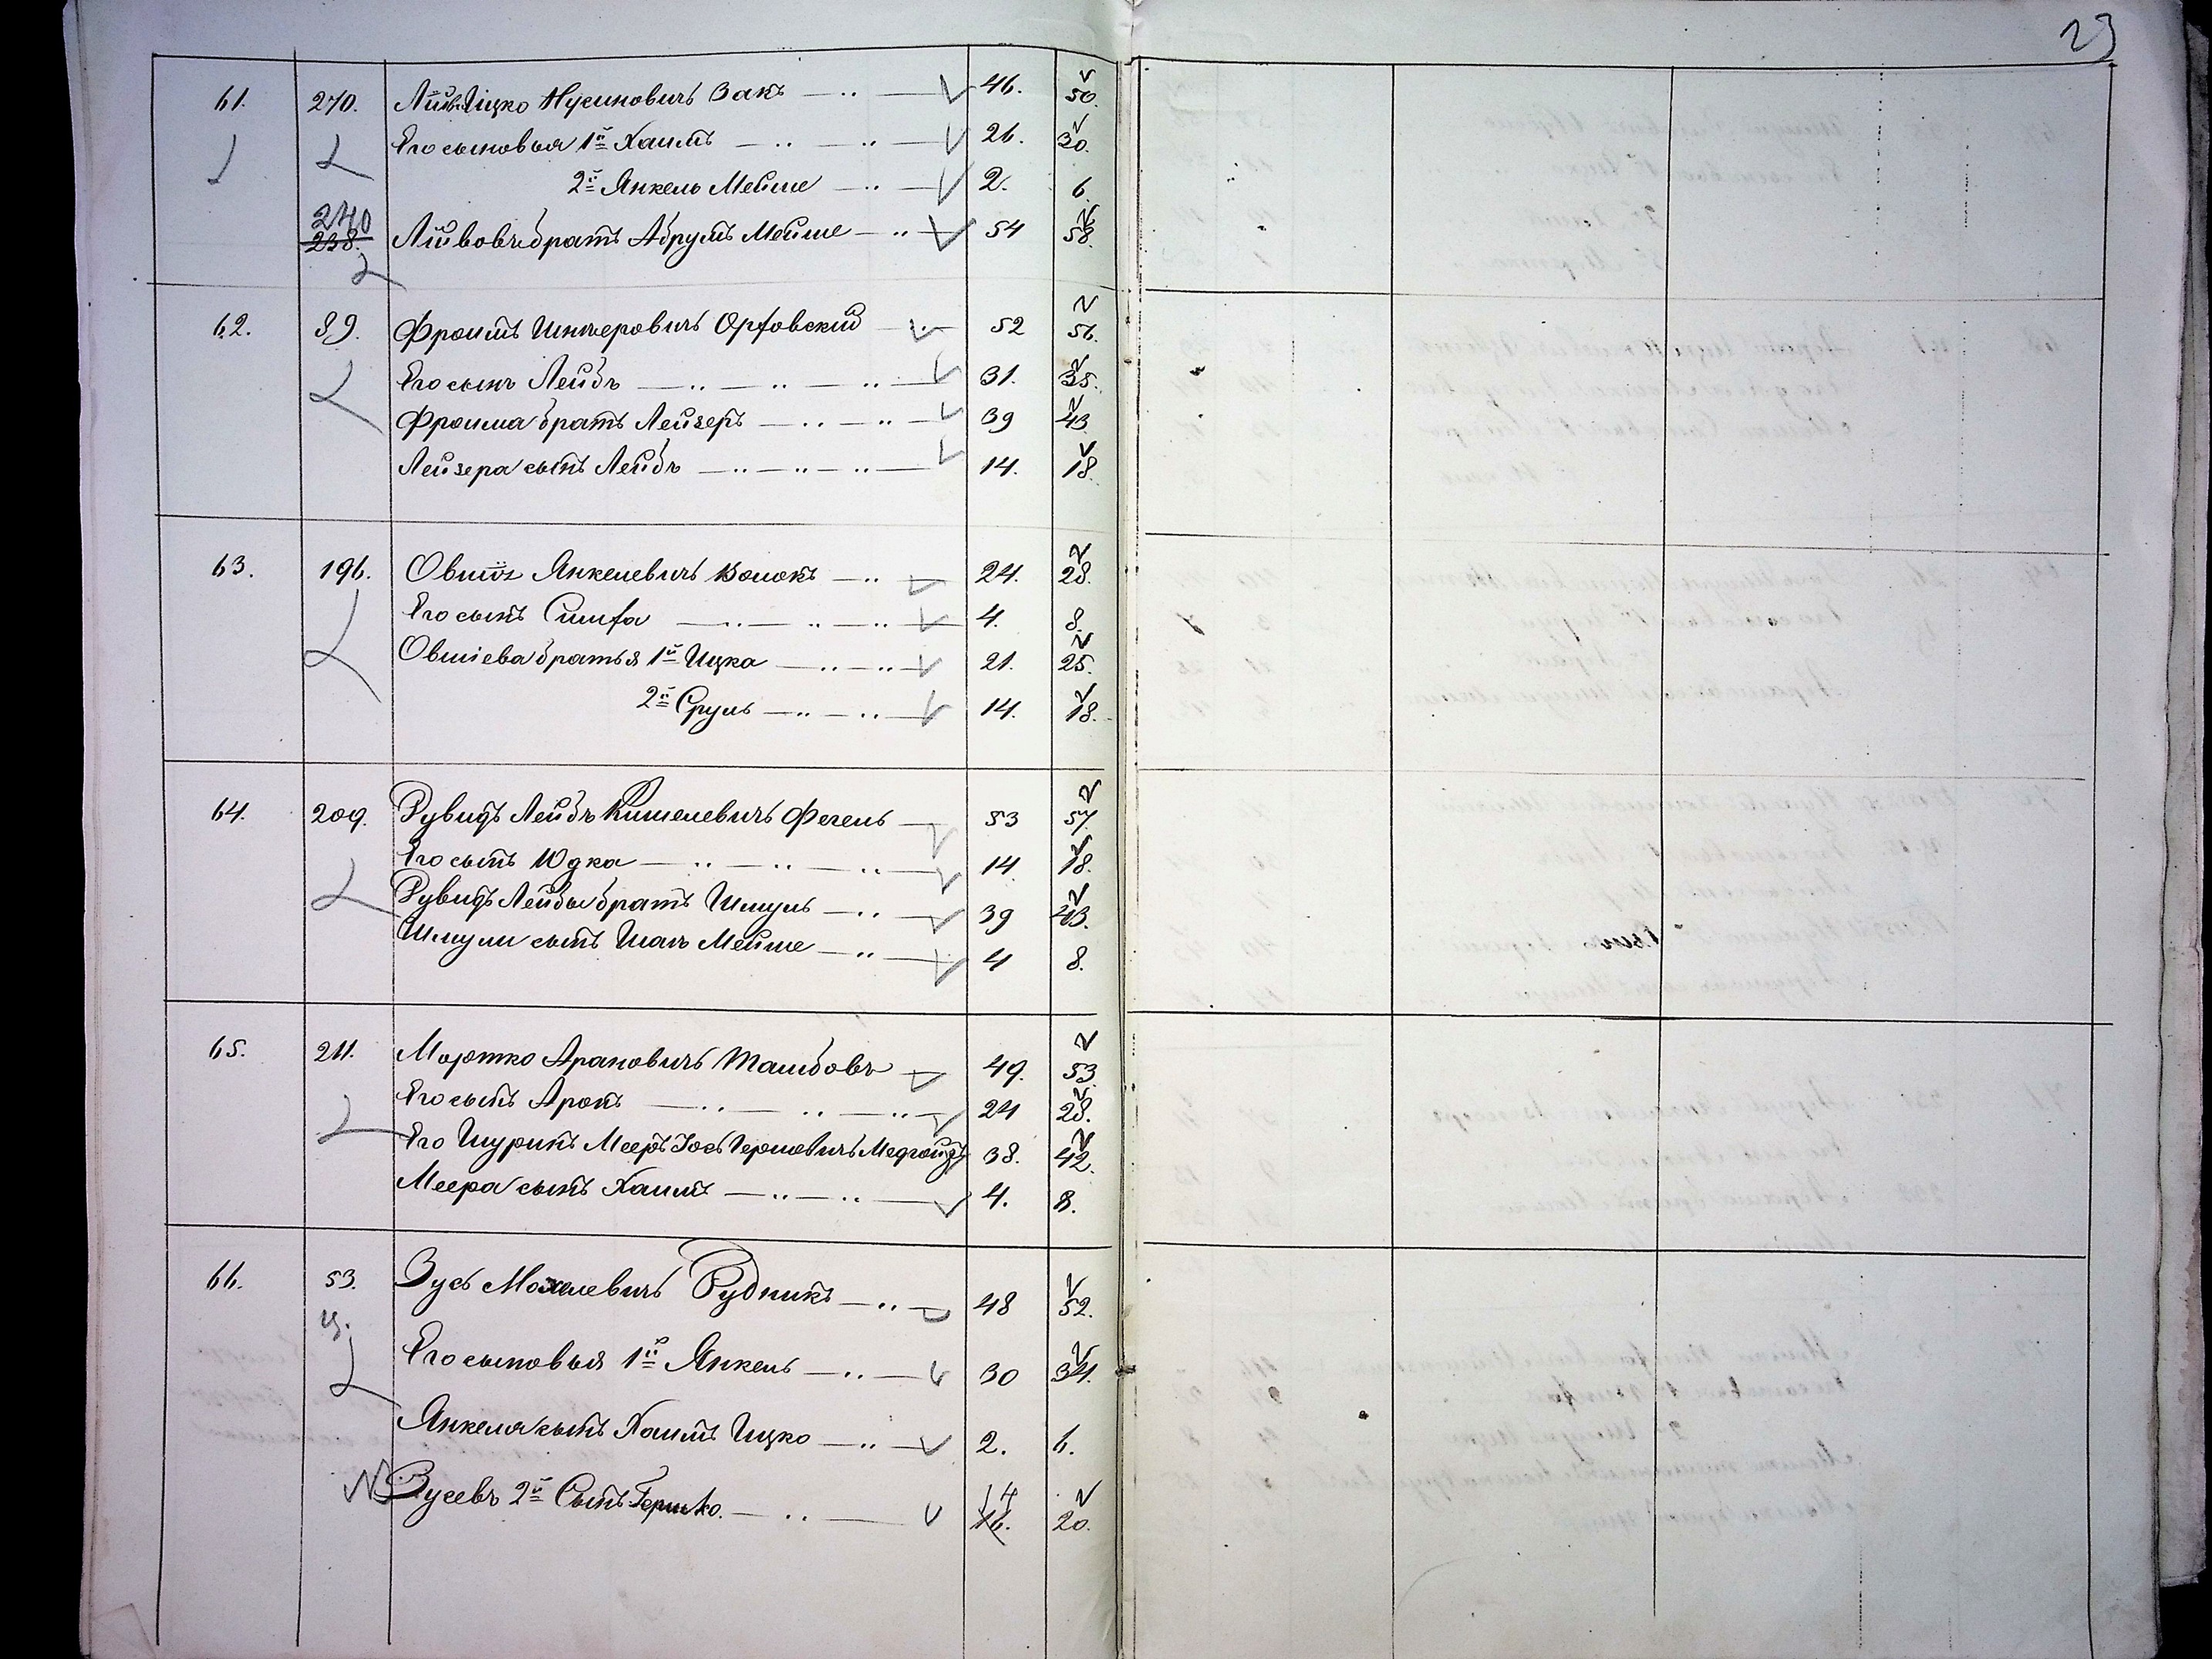 23
61. 270. Лейб Ицко Нусиновичъ Закъ 46. 50.
Его сыновья 1й Хаимъ 26. 30.
2й Янкель Мейше 2. 6.
240 238. Лейбовъ братъ Абрумъ Мейше 54 58.
62. 89. Фроимъ Орховскій 52 56.
Его сынъ Лейбъ 31. 35.
Фроима братъ Лейзеръ 39 43.
Лейзера сынъ Лейбъ 14. 18.
63. 196. Овшій Янкелевичъ Волокъ 24. 28.
Его сынъ Симха 4. 8.
Овшіева братья 1й Ицка 21. 25.
2й Сруль 14. 18.
64. 209. Рувидъ Лейбъ Кишелевичъ Фегель 53 57.
Его сынъ Юдка 14 18.
Рувидъ Лейбы братъ Шмуль 39 43.
Шмули сынъ Мейше 4 8.
65. 211. Мортко Ароновичъ 49. 53.
Его сынъ Аронъ 24 28.
Его Шурикъ Мееръ Іось 38. 42.
Меера сынъ Хаимъ 4. 8.
66. 53. Зусь Рудникъ 48 52.
Его сыновья 1й Янкель 30 34.
Янкеля сынъ Хаимъ Ицко 2. 6.
Зусевъ 2й Сынъ Гершко. 14 16. 20.